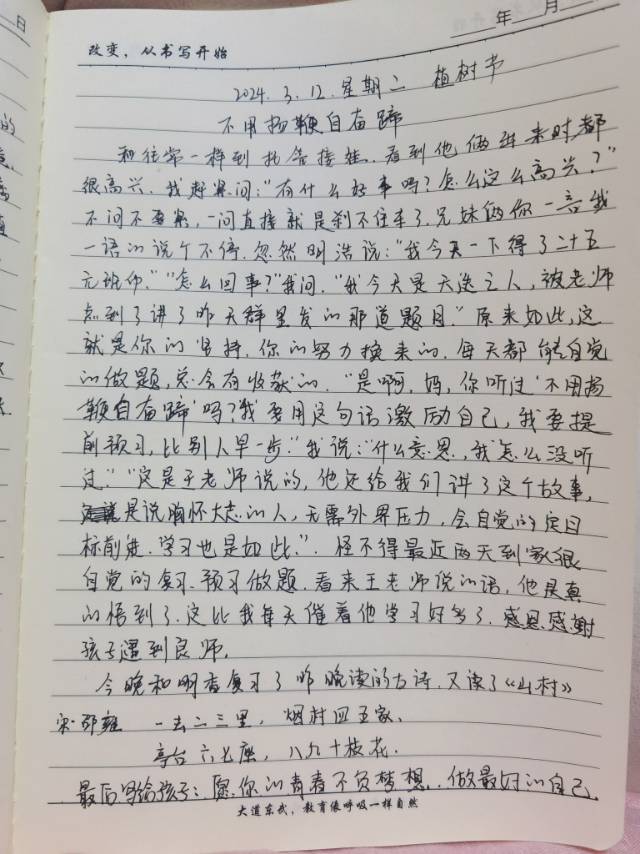 日
年 月
改变，从书写开始
2024.3.12.星期二 植树节
不用扬鞭自奋蹄
和往常一样到托管接娃，看到他俩进来时都
很高兴，我赶紧问："有什么好事吗？怎么这么高兴？"
不问不要紧，一问直接就是刹不住车了，兄妹俩你一言我
一语的说个不停，忽然明浩说："我今天一下得了二十五
元班币。""怎么回事？"我问，"我今天是天选之人，被老师
点到了讲了昨天群里发的那道题目。"原来如此，这
就是你的坚持，你的努力换来的，每天都能自觉
的做题，总会有收获的。"是啊，妈，你听过'不用扬
鞭自奋蹄'吗？我要用这句话激励自己，我要提
前预习，比别人早一步。"我说："什么意思，我怎么没听
过。""这是王老师说的，他还给我们讲了这个故事，
是说胸怀大志的人，无需外界压力，会自觉的定目
标前进，学习也是如此。"。怪不得最近两天到家很
自觉的复习、预习做题，看来王老师说的话，他是真
的悟到了，这比我每天催着他学习好多了，感恩感谢
孩子遇到良师。
今晚和明杳复习了昨晚读的古诗，又读了《山村》
宋·邵雍 一去二三里，烟村四五家、
亭台六七座，八九十枝花．
最后写给孩子：愿你的青春不负梦想，做最好的自己
大道东成，教育像呼吸一样自然